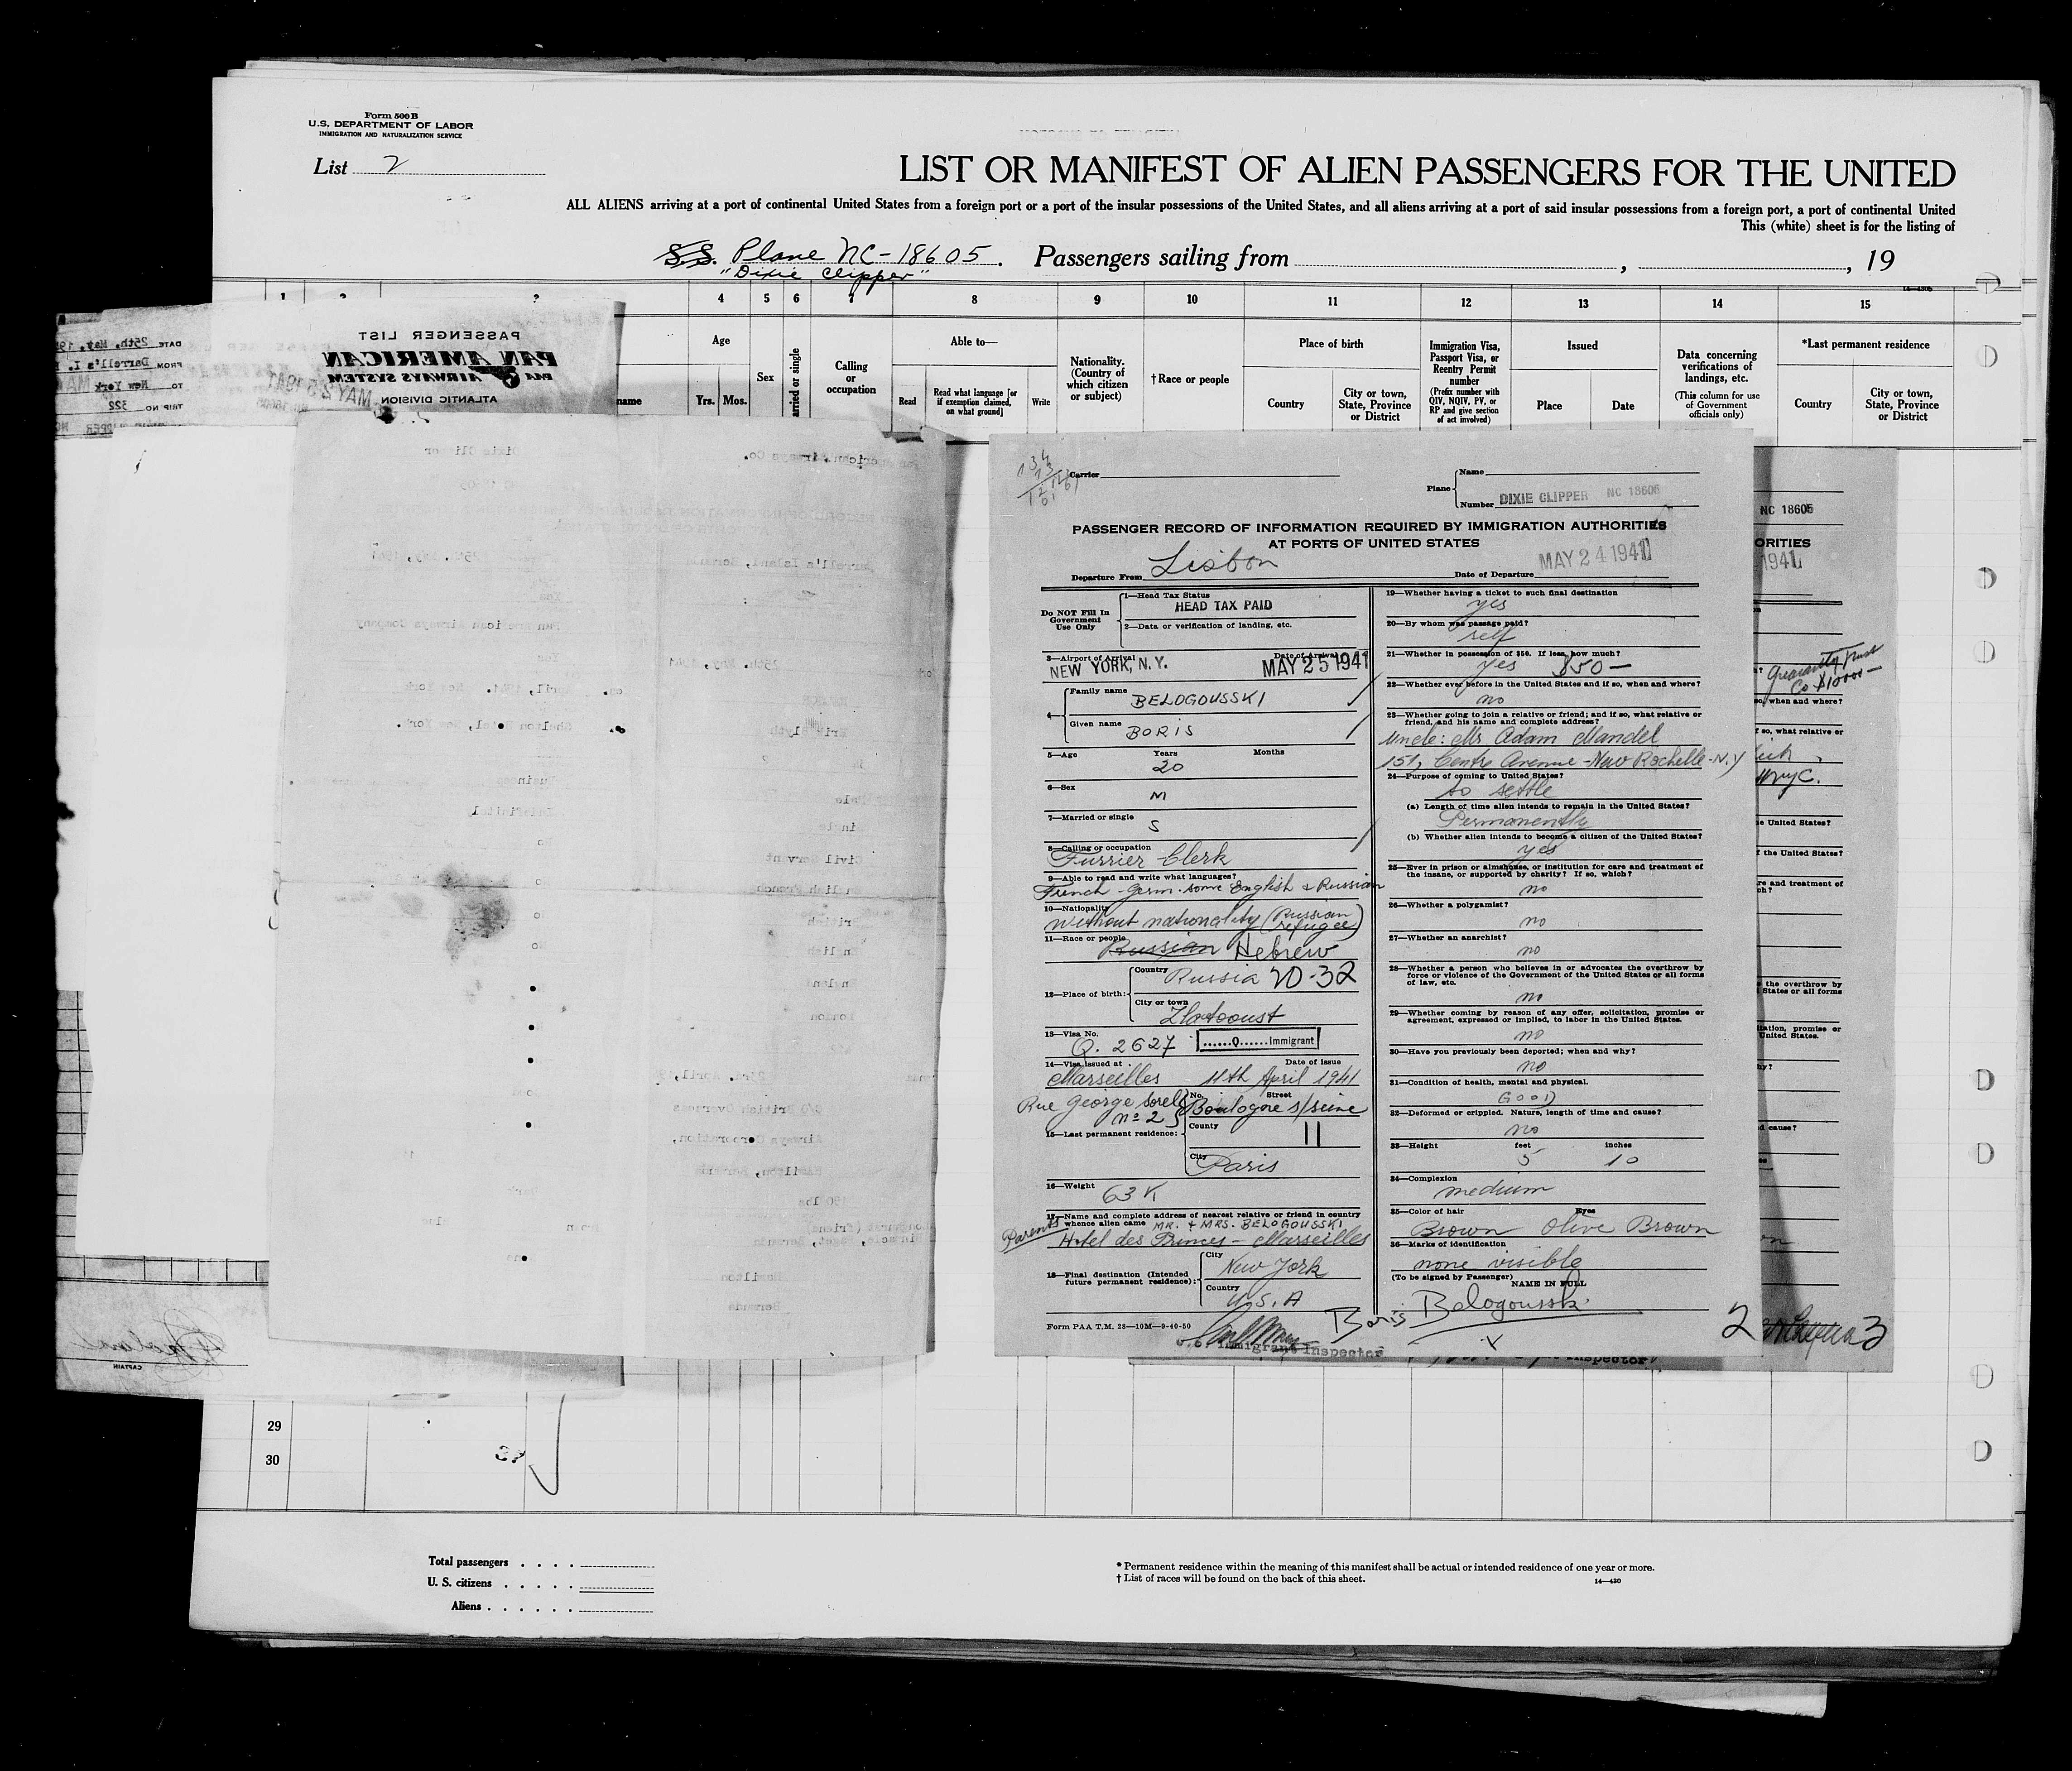 Form 500 B
U.S. DEPARTMENT OF LABOR
IMMIGRATION AND NATURALIZATION SERVICE
List 2
LIST OR MANIFEST OF ALIEN PASSENGERS FOR THE UNITED
ALL ALIENS arriving at a port of continental United States from a foreign port or a port of the insular possessions of the United States, and all aliens arriving at a port of said insular possessions from a foreign port, a port of continental United
This (white) sheet is for the listing of
S.S. Plane NC-18605. Passengers sailing from , , 19
"Dixie Clipper"
1 2 3 4 5 6 7 8 9 10 11 12 13 14 15
name
Age
Yrs. Mos.
Sex
arried or single
Calling
or
occupation
Able to—
Read
Read what language [or
if exemption claimed,
on what ground]
Write
Nationality.
(Country of
which citizen
or subject)
†Race or people
Place of birth
Country
City or town,
State, Province
or District
Immigration Visa,
Passport Visa, or
Reentry Permit
number
(Prefix number with
QIV, NQIV, PV, or
RP and give section
of act involved)
Issued
Place
Date
Data concerning
verifications of
landings, etc.
(This column for use
of Government
officials only)
*Last permanent residence
Country
City or town,
State, Province
or District
PASSENGER LIST
PAN AMERICAN
PAA AIRWAYS SYSTEM
ATLANTIC DIVISION
DATE 25th, May, 19
FROM Darrell's I.
TO New York
TRIP NO 322
CAPTAIN
Pan American Airways Co.
Darrell's Island,
Pan American Airways Company
25th. May, 1941
Shelton Hotel, New York.
Civil Servant
British
London
C/O British Overseas
Airways Corporation,
Hamilton, Bermuda
190 lbs
Hamilton
Bermuda
Carrier
Plane
Name
Number DIXIE CLIPPER NC 18605
PASSENGER RECORD OF INFORMATION REQUIRED BY IMMIGRATION AUTHORITIES
AT PORTS OF UNITED STATES
Departure From Lisbon
Date of Departure MAY 24 1941
Do NOT Fill In
Government
Use Only
1—Head Tax Status
HEAD TAX PAID
2—Data or verification of landing, etc.
3—Airport of Arrival Date of Arrival
NEW YORK, N. Y. MAY 25 1941
4 Family name BELOGOUSSKI
Given name BORIS
5—Age Years Months
20
6—Sex
M
7—Married or single
S
8—Calling or occupation
Furrier - Clerk
9—Able to read and write what languages?
French - germ. some English & Russian
10—Nationality
Without nationality (Russian refugee)
11—Race or people
Russian Hebrew
12—Place of birth:
Country Russia 20-32
City or town
Zlatooust
13—Visa No.
Q. 2627 ......Q...... Immigrant
14—Visa issued at Date of issue
Marseilles 11th April 1941
Rue George Sorell
nº 2
No. Street
Boulogne s/seine
15—Last permanent residence:
County
11
City
Paris
16—Weight
63 K
17—Name and complete address of nearest relative or friend in country
whence alien came MR. & MRS. BELOGOUSSKI
Parents
Hotel des Princes - Marseilles
18—Final destination (Intended
future permanent residence):
City
New York
Country
U.S.A
Form PAA T.M. 28—10M—9-40-50
Immigrant Inspector
19—Whether having a ticket to such final destination
yes
20—By whom was passage paid?
self
21—Whether in possession of $50. If less, how much?
yes $50—
22—Whether ever before in the United States and if so, when and where?
no
23—Whether going to join a relative or friend; and if so, what relative or
friend, and his name and complete address?
Uncle: Mr Adam Mandel
151, Centre Avenue - New Rochelle - N.Y
24—Purpose of coming to United States?
to settle
(a) Length of time alien intends to remain in the United States?
Permanently
(b) Whether alien intends to become a citizen of the United States?
yes
25—Ever in prison or almshouse, or institution for care and treatment of
the insane, or supported by charity? If so, which?
no
26—Whether a polygamist?
no
27—Whether an anarchist?
no
28—Whether a person who believes in or advocates the overthrow by
force or violence of the Government of the United States or all forms
of law, etc.
no
29—Whether coming by reason of any offer, solicitation, promise or
agreement, expressed or implied, to labor in the United States.
no
30—Have you previously been deported; when and why?
no
31—Condition of health, mental and physical.
GOOD
32—Deformed or crippled. Nature, length of time and cause?
no
33—Height feet inches
5 10
34—Complexion
medium
35—Color of hair Eyes
Brown Olive Brown
36—Marks of identification
none visible
(To be signed by Passenger) NAME IN FULL
Boris Belogousski
NC 18605
ORITIES
1941
Guaranty Trust
Co $10000—
so, when and where?
if so, what relative or
NYC.
e United States?
f the United States?
re and treatment of
ch?
the overthrow by
States or all forms
itation, promise or
United States.
hy?
d cause?
2
3
Inspector
29
30
Total passengers
U. S. citizens
Aliens
* Permanent residence within the meaning of this manifest shall be actual or intended residence of one year or more.
† List of races will be found on the back of this sheet.
14—430